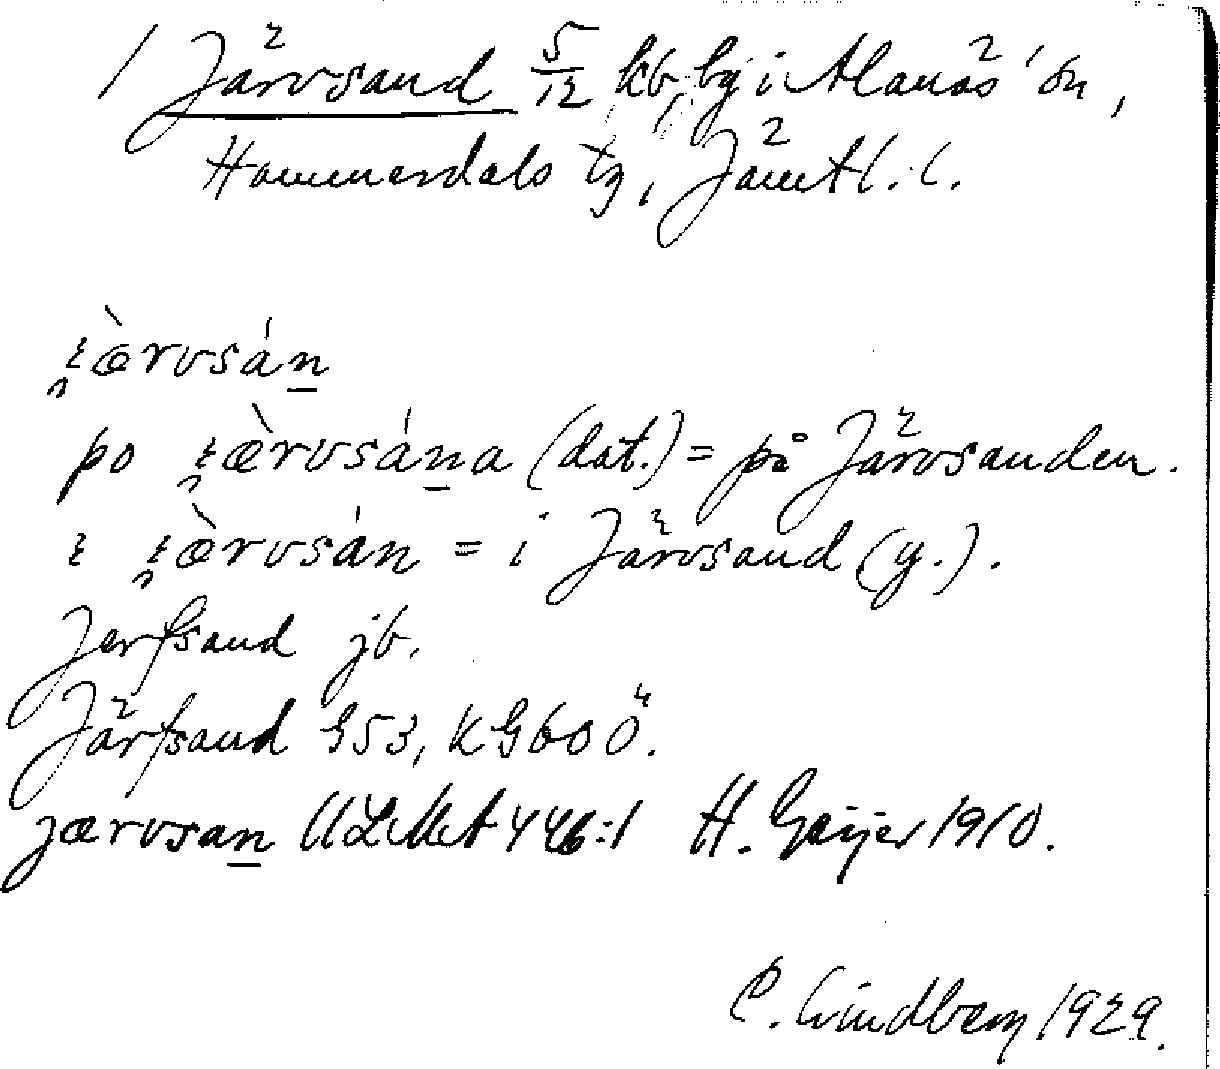 / Järvsand 5/12 kb, by i Alanäs sn,
Hammerdals tg, Jämtl. l.
i̯æ̀rvsán̲
po i̯æ̀rvsán̲a (dat.) = på Järvsanden.
i i̯æ̀rvsán = i Järvsand (y.).
Jerfsand jb.
Järfsand G53, KG60Ö.
jærvsan̲ ULMA 446:1 H. Geijer 1910.
C. Lindberg 1929.